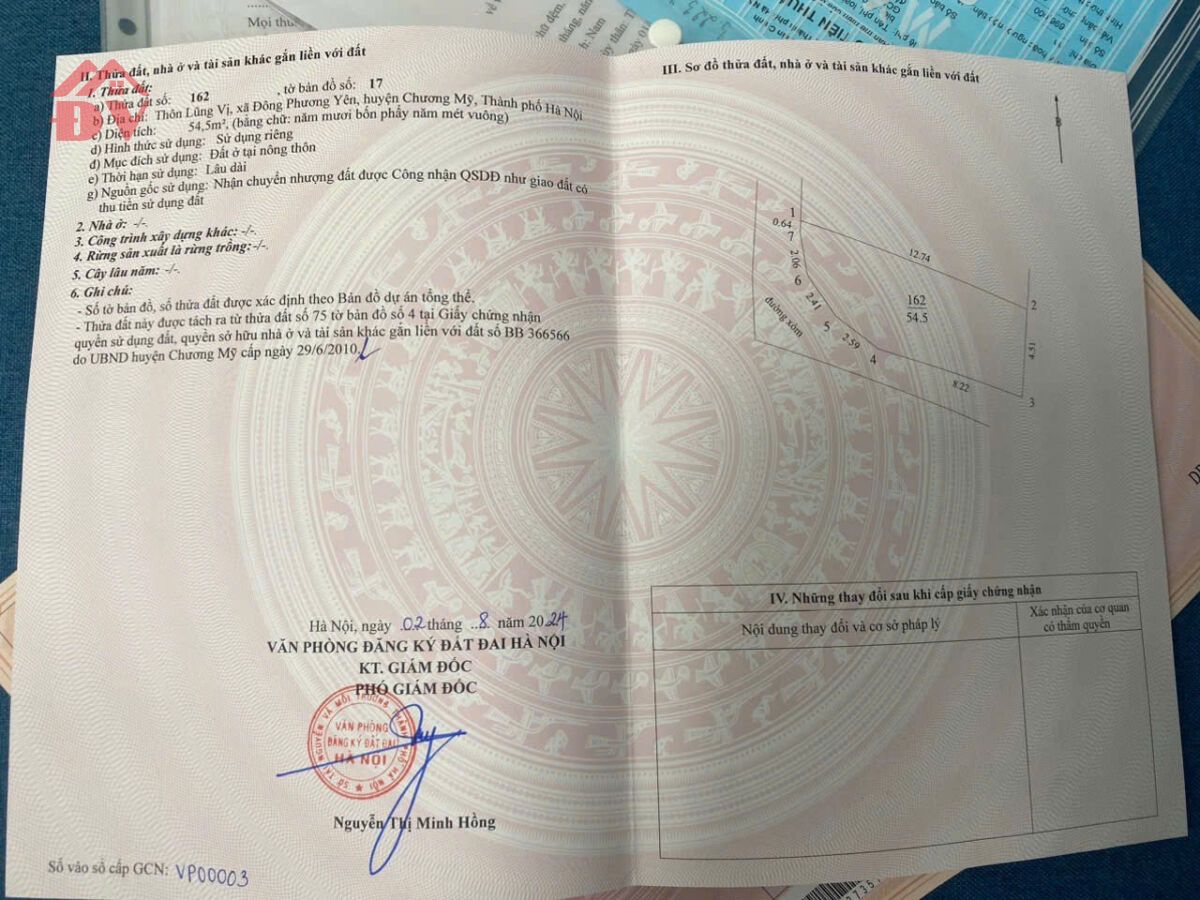 Mọi thu
II. Thửa đất, nhà ở và tài sản khác gắn liền với đất
1. Thửa đất:
a) Thửa đất số: 162 , tờ bản đồ số: 17
b) Địa chỉ: Thôn Lũng Vị, xã Đông Phương Yên, huyện Chương Mỹ, Thành phố Hà Nội
c) Diện tích: 54,5m², (bằng chữ: năm mươi bốn phẩy năm mét vuông)
d) Hình thức sử dụng: Sử dụng riêng
đ) Mục đích sử dụng: Đất ở tại nông thôn
e) Thời hạn sử dụng: Lâu dài
g) Nguồn gốc sử dụng: Nhận chuyển nhượng đất được Công nhận QSDĐ như giao đất có
thu tiền sử dụng đất
2. Nhà ở: -/-.
3. Công trình xây dựng khác: -/-.
4. Rừng sản xuất là rừng trồng: -/-.
5. Cây lâu năm: -/-.
6. Ghi chú:
- Số tờ bản đồ, số thửa đất được xác định theo Bản đồ dự án tổng thể.
- Thửa đất này được tách ra từ thửa đất số 75 tờ bản đồ số 4 tại Giấy chứng nhận
quyền sử dụng đất, quyền sở hữu nhà ở và tài sản khác gắn liền với đất số BB 366566
do UBND huyện Chương Mỹ cấp ngày 29/6/2010
Hà Nội, ngày 02 tháng 8 năm 2024
VĂN PHÒNG ĐĂNG KÝ ĐẤT ĐAI HÀ NỘI
KT. GIÁM ĐỐC
PHÓ GIÁM ĐỐC
SỞ TÀI NGUYÊN VÀ MÔI TRƯỜNG THÀNH PHỐ HÀ NỘI
VĂN PHÒNG
ĐĂNG KÝ ĐẤT ĐAI
HÀ NỘI
Nguyễn Thị Minh Hồng
Số vào sổ cấp GCN: VP00003
III. Sơ đồ thửa đất, nhà ở và tài sản khác gắn liền với đất
B
1
0.64
7
12.74
2.06
6
162
54.5
2
2.41
đường xóm
5
2.59
4
4.51
8.22
3
IV. Những thay đổi sau khi cấp giấy chứng nhận
Nội dung thay đổi và cơ sở pháp lý
Xác nhận của cơ quan
có thẩm quyền